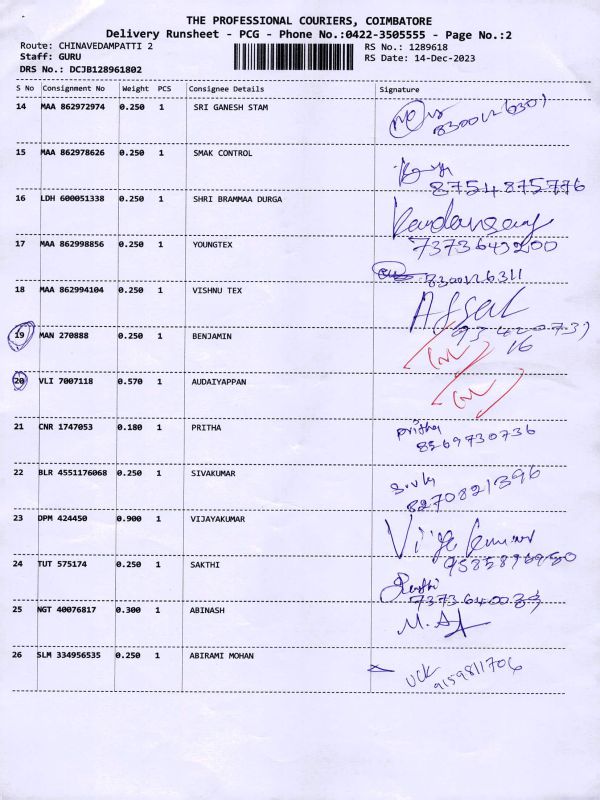 THE PROFESSIONAL COURIERS, COIMBATORE
Delivery Runsheet - PCG - Phone No.:0422-3505555 - Page No.:2
Route: CHINAVEDAMPATTI 2
RS No.: 1289618
Staff: GURU
RS Date: 14-Dec-2023
DRS No.: DCJB128961802
S No Consignment No Weight PCS Consignee Details Signature
14 MAA 862972974 0.250 1 SRI GANESH STAM
15 MAA 862978626 0.250 1 SMAK CONTROL
8754875776
16 LDH 600051338 0.250 1 SHRI BRAMMAA DURGA
17 MAA 862998856 0.250 1 YOUNGTEX
18 MAA 862994104 0.250 1 VISHNU TEX
Afsal
19 MAN 270888 0.250 1 BENJAMIN
16
20 VLI 7007118 0.570 1 AUDAIYAPPAN
21 CNR 1747053 0.180 1 PRITHA
Pritha
8569730736
22 BLR 4551176068 0.250 1 SIVAKUMAR
8270821396
23 DPM 424450 0.900 1 VIJAYAKUMAR
24 TUT 575174 0.250 1 SAKTHI
25 NGT 40076817 0.300 1 ABINASH
26 SLM 334956535 0.250 1 ABIRAMI MOHAN
9159811706